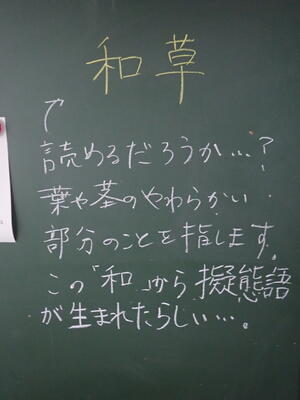 和草
読めるだろうか…?
葉や茎のやわらかい
部分のことを指します。
この「和」から擬態語
が生まれたらしい…。